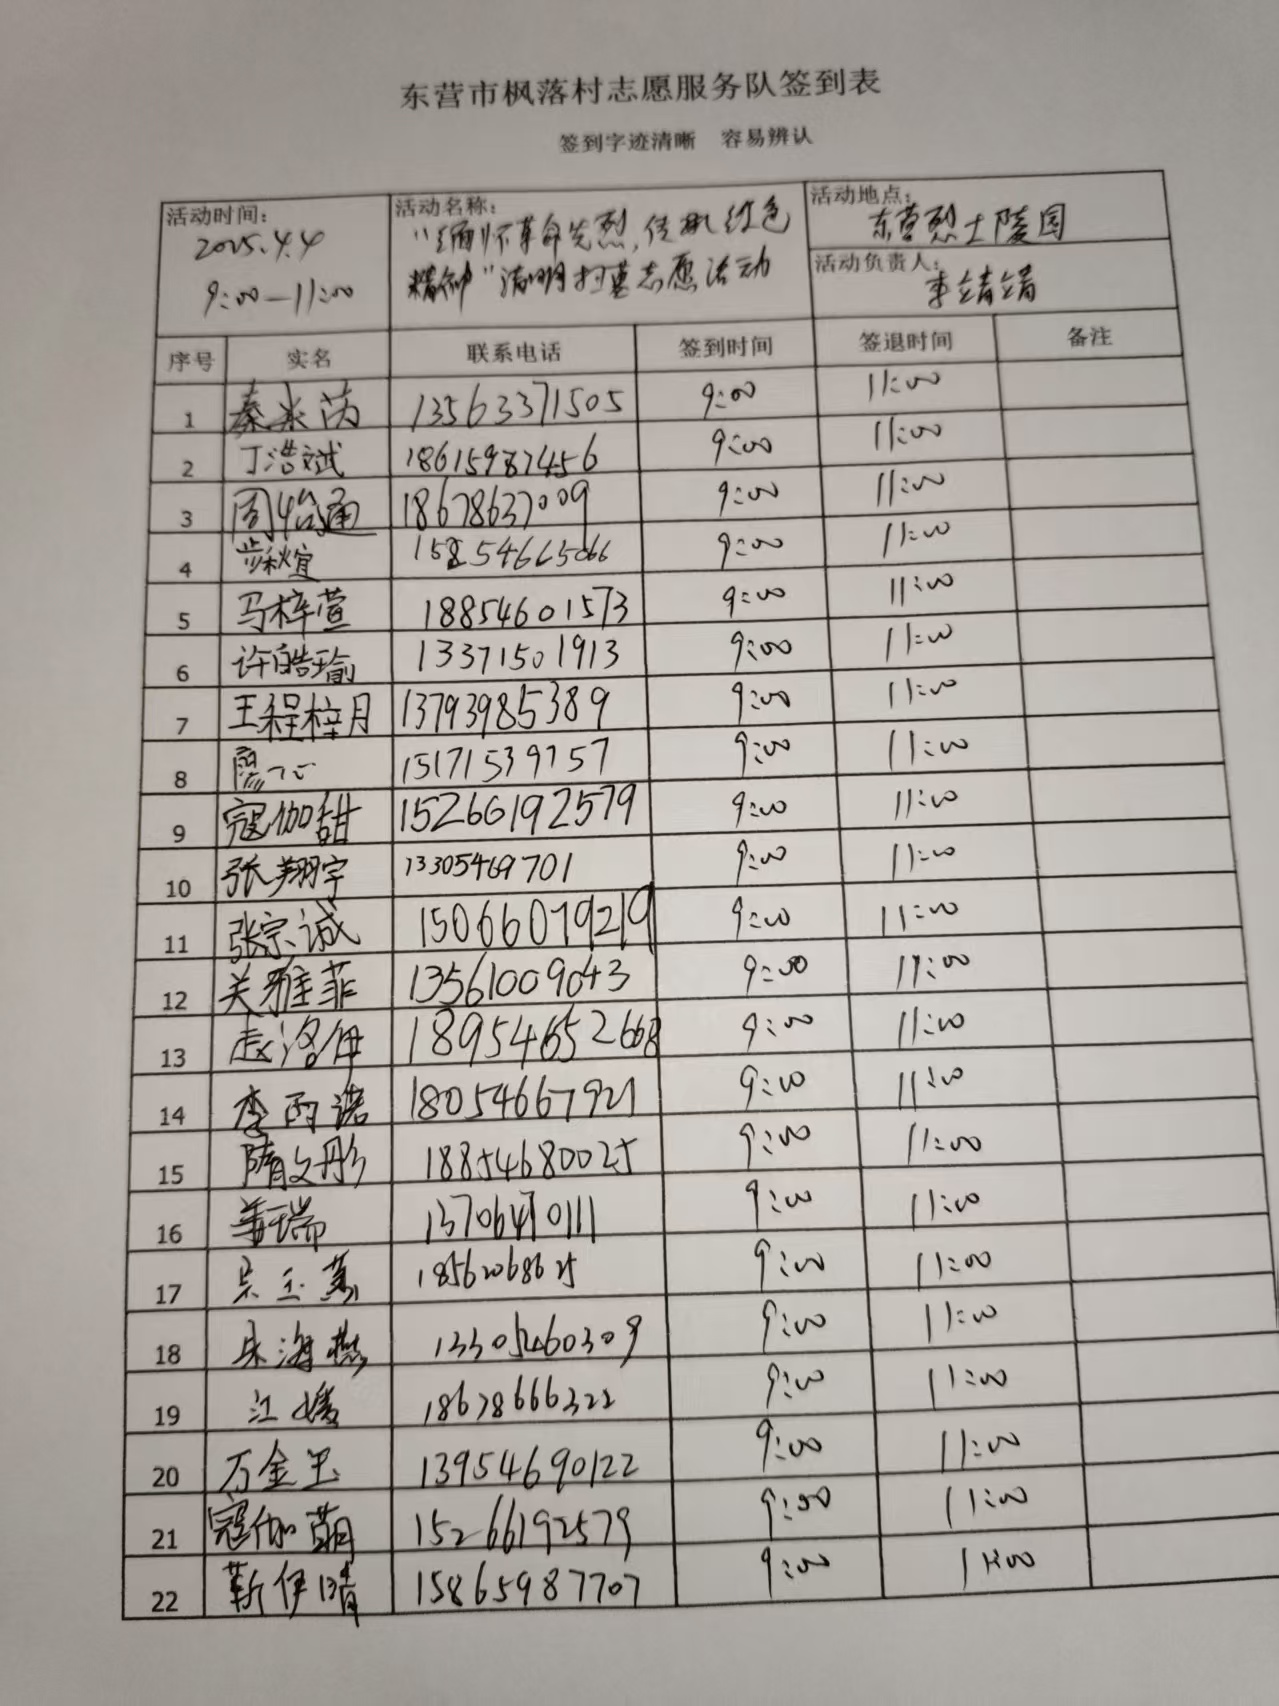 东营市枫落村志愿服务队签到表
签到字迹清晰 容易辨认
活动时间：
2025.4.4
9:00—11:00
活动名称：
"缅怀革命先烈，传承红色
精神"清明扫墓志愿活动
活动地点：
东营烈士陵园
活动负责人：
李婧婧
序号 实名 联系电话 签到时间 签退时间 备注
1 秦米芮 13563371505 9:00 11:00
2 丁浩斌 18615987456 9:00 11:00
3 周怡涵 18678637009 9:00 11:00
4 步秋宜 15854665066 9:00 11:00
5 马梓萱 18854601573 9:00 11:00
6 许皓瑜 13371501913 9:00 11:00
7 王程梓月 13793985389 9:00 11:00
8 15171539757 9:00 11:00
9 寇伽甜 15266192579 9:00 11:00
10 张翔宇 13305469701 9:00 11:00
11 张宗诚 15066079219 9:00 11:00
12 关雅菲 13561009043 9:00 11:00
13 赵洛伊 18954652668 9:00 11:00
14 李雨诺 18054667921 9:00 11:00
15 隋文彤 18854680025 9:00 11:00
16 姜瑞 13706470111 9:00 11:00
17 吴玉蕙 18562068625 9:00 11:00
18 朱海燕 13305460309 9:00 11:00
19 江媛 18678666322 9:00 11:00
20 万金玉 13954690122 9:00 11:00
21 寇伽萌 15266192579 9:00 11:00
22 靳伊晴 15865987707 9:00 11:00